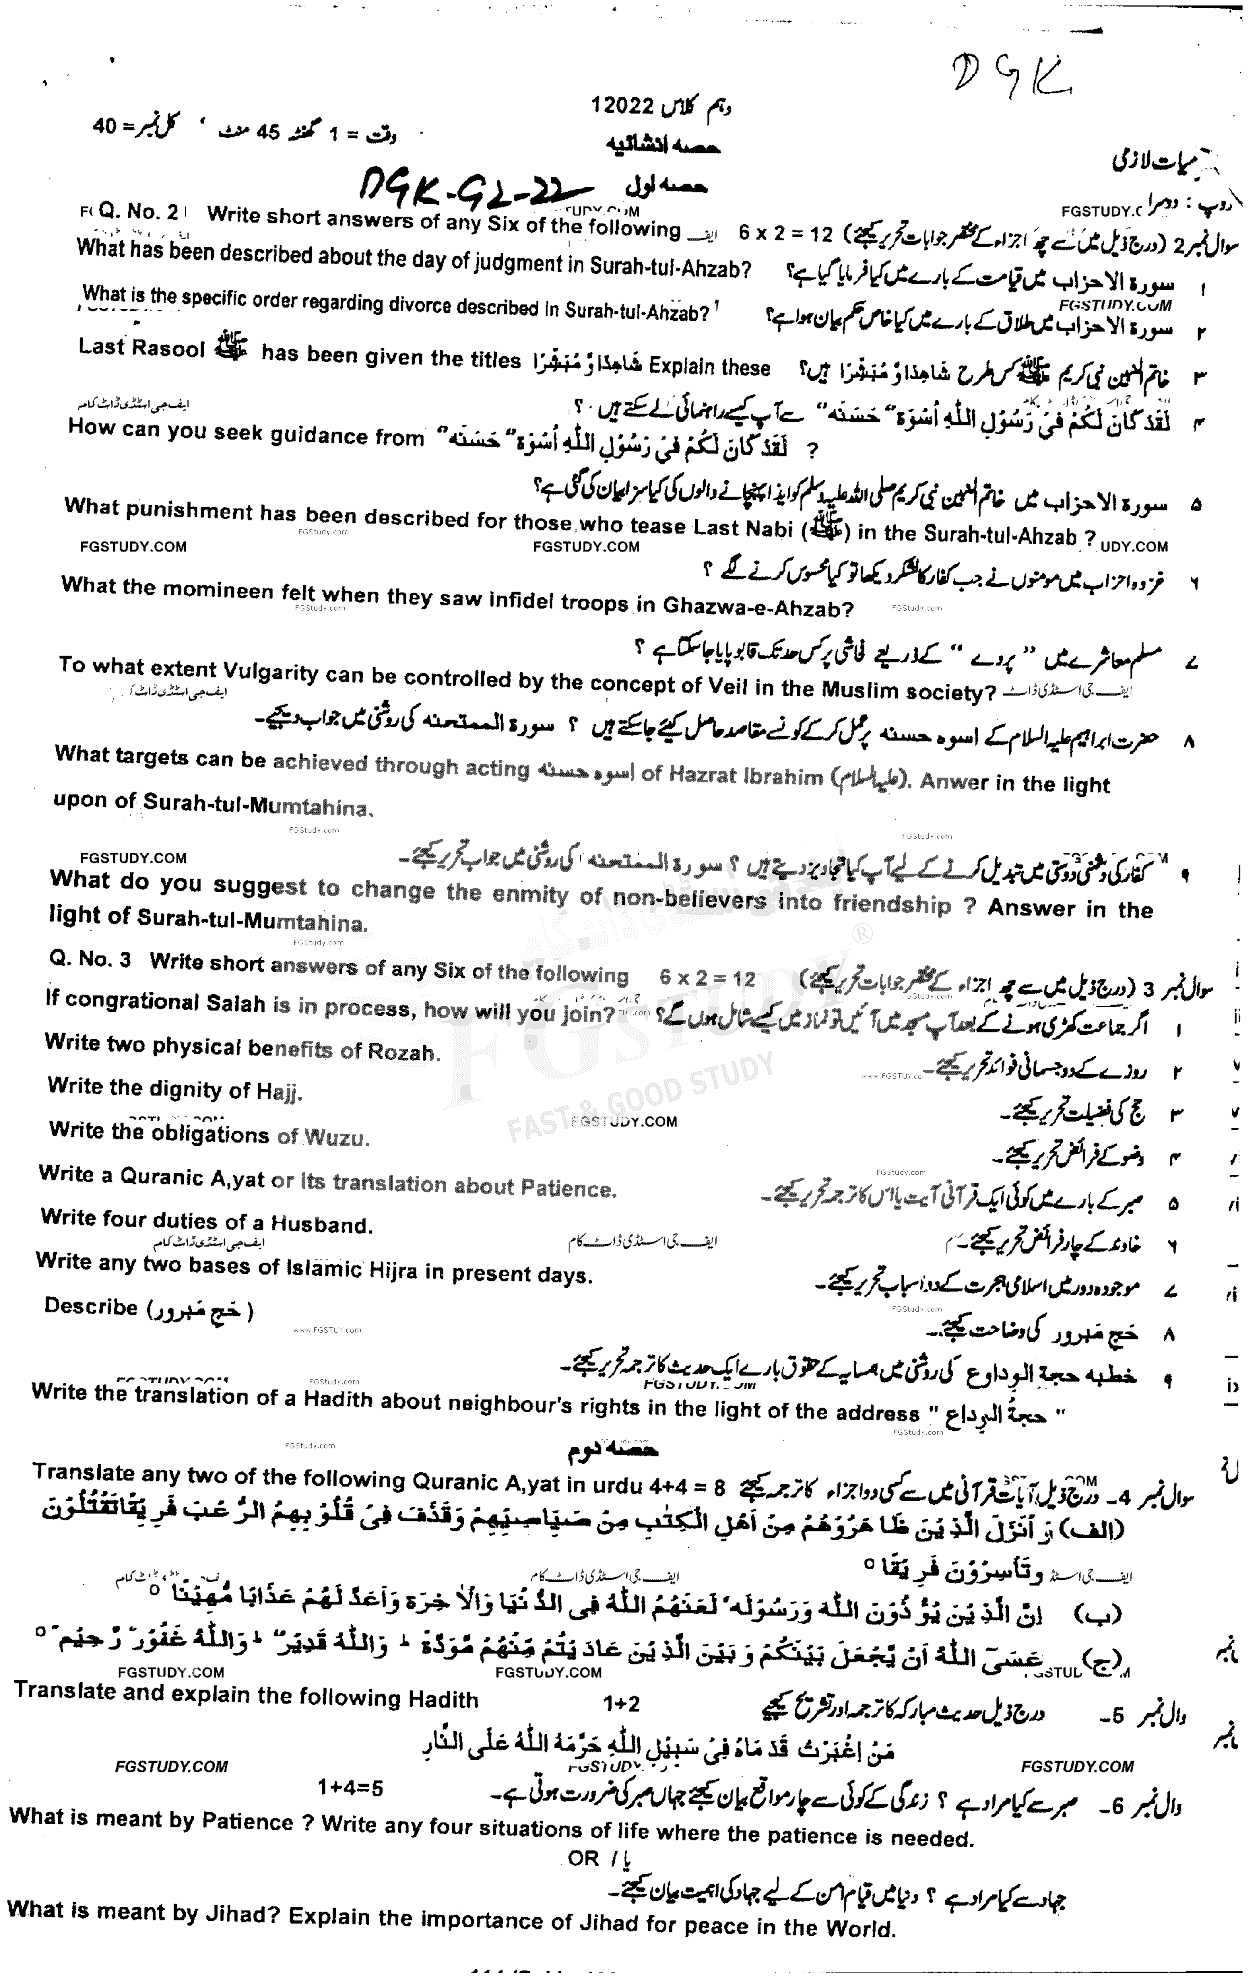 DGK
دہم کلاس 12022
وقت = 1 گھنٹہ 45 منٹ ' کل نمبر = 40
حصہ انشائیہ
میات لازمی
حصہ اول
DGK-G2-22
روپ : دوسرا
FGSTUDY.C
UDY.COM
Q. No. 2 Write short answers of any Six of the following 6 x 2 = 12 سوال نمبر 2 (درج ذیل میں سے چھ اجزاء کے مختصر جوابات تحریر کیجئے)
What has been described about the day of judgment in Surah-tul-Ahzab? ۱ سورۃ الاحزاب میں قیامت کے بارے میں کیا فرمایا گیا ہے؟
FGSTUDY.COM
What is the specific order regarding divorce described in Surah-tul-Ahzab? ۲ سورۃ الاحزاب میں طلاق کے بارے میں کیا خاص حکم بیان ہوا ہے؟
Last Rasool ﷺ has been given the titles شَاهِدًا وَّ مُبَشِّرًا Explain these ۳ خاتم النبیین نبی کریم ﷺ کس طرح شَاهِدًا وَّ مُبَشِّرًا ہیں؟
ایف جی اسٹڈی ڈاٹ کام
۴ لَقَدْ كَانَ لَكُمْ فِيْ رَسُوْلِ اللّٰهِ اُسْوَةٌ" حَسَنَه" سے آپ کیسے راہنمائی لے سکتے ہیں ؟
How can you seek guidance from لَقَدْ كَانَ لَكُمْ فِيْ رَسُوْلِ اللّٰهِ اُسْوَةٌ" حَسَنَه" ?
۵ سورۃ الاحزاب میں خاتم النبیین نبی کریم صلی اللہ علیہ وسلم کو ایذا پہنچانے والوں کی کیا سزا بیان کی گئی ہے؟
What punishment has been described for those who tease Last Nabi (ﷺ) in the Surah-tul-Ahzab ?
FGStudy.com
FGSTUDY.COM FGSTUDY.COM UDY.COM
۶ غزوہ احزاب میں مومنوں نے جب کفار کا لشکر دیکھا تو کیا محسوس کرنے لگے ؟
What the momineen felt when they saw infidel troops in Ghazwa-e-Ahzab?
FGStudy.com FGStudy.com
۷ مسلم معاشرے میں "پردے" کے ذریعے فحاشی پر کس حد تک قابو پایا جا سکتا ہے ؟
To what extent Vulgarity can be controlled by the concept of Veil in the Muslim society?
ایف جی اسٹڈی ڈاٹ کام ایف جی اسٹڈی ڈاٹ
۸ حضرت ابراہیم علیہ السلام کے اسوہ حسنہ پر عمل کر کے کونسے مقاصد حاصل کیئے جا سکتے ہیں ؟ سورۃ الممتحنہ کی روشنی میں جواب دیجیے۔
What targets can be achieved through acting اسوہ حسنہ of Hazrat Ibrahim (علیہ السلام). Anwer in the light
upon of Surah-tul-Mumtahina.
FGStudy.com FGStudy.com
FGSTUDY.COM
۹ کفار کی دشنی دوستی میں تبدیل کرنے کے لیے آپ کیا تجاویز دیتے ہیں ؟ سورۃ الممتحنہ کی روشنی میں جواب تحریر کیجئے۔
What do you suggest to change the enmity of non-believers into friendship ? Answer in the
light of Surah-tul-Mumtahina.
FGStudy.com
Q. No. 3 Write short answers of any Six of the following 6 x 2 = 12 سوال نمبر 3 (درج ذیل میں سے چھ اجزاء کے مختصر جوابات تحریر کیجئے)
If congrational Salah is in process, how will you join? ۱ اگر جماعت کھڑی ہونے کے بعد آپ مسجد میں آئیں تو نماز میں کیسے شامل ہوں گے؟
Write two physical benefits of Rozah. ۲ روزے کے دو جسمانی فوائد تحریر کیجئے۔
Write the dignity of Hajj. ۳ حج کی فضیلت تحریر کیجئے۔
FGSTUDY
FAST & GOOD STUDY
FGSTUDY.COM
Write the obligations of Wuzu. ۴ وضو کے فرائض تحریر کیجئے۔
FGStudy.com
Write a Quranic A,yat or its translation about Patience. ۵ صبر کے بارے میں کوئی ایک قرآنی آیت یا اس کا ترجمہ تحریر کیجئے۔
Write four duties of a Husband. ۶ خاوند کے چار فرائض تحریر کیجئے۔
ایف جی اسٹڈی ڈاٹ کام ایف جی اسٹڈی ڈاٹ کام
Write any two bases of Islamic Hijra in present days. ۷ موجودہ دور میں اسلامی ہجرت کے دو اسباب تحریر کیجئے۔
Describe (حَجِ مَبرور) ۸ حَجِ مَبرور کی وضاحت کیجئے۔
www.FGSTUY.com FGStudy.com
۹ خطبہ حجۃ الوداوع کی روشنی میں ہمسایہ کے حقوق بارے ایک حدیث کا ترجمہ تحریر کیجئے۔
FGStudy.com
Write the translation of a Hadith about neighbour's rights in the light of the address " حجۃُ الوداع "
FGStudy.com FGStudy.com
حصہ دوم
Translate any two of the following Quranic A,yat in urdu 4+4 = 8 سوال نمبر 4۔ درج ذیل آیات قرآنی میں سے کسی دو اجزاء کا ترجمہ کیجئے
(الف) وَ اَنْزَلَ الَّذِيْنَ ظَاهَرُوْهُمْ مِنْ اَهْلِ الْكِتٰبِ مِنْ صَيَاصِيْهِمْ وَقَذَفَ فِيْ قُلُوْبِهِمُ الرُّعْبَ فَرِيْقًا تَقْتُلُوْنَ
وَتَأسِرُوْنَ فَرِيْقًا ○
ایف جی اسٹڈی ڈاٹ کام
(ب) اِنَّ الَّذِيْنَ يُؤْذُوْنَ اللّٰهَ وَرَسُوْلَه' لَعَنَهُمُ اللّٰهُ فِى الدُّنْيَا وَالْاٰخِرَةِ وَاَعَدَّ لَهُمْ عَذَابًا مُّهِيْنًا ○
(ج) عَسَى اللّٰهُ اَنْ يَّجْعَلَ بَيْنَكُمْ وَ بَيْنَ الَّذِيْنَ عَادَيْتُمْ مِّنْهُمْ مَّوَدَّةً ؕ وَاللّٰهُ قَدِيْرٌ" ؕ وَاللّٰهُ غَفُوْرٌ" رَّحِيْمٌ" ○
FGSTUDY.COM FGSTUDY.COM
Translate and explain the following Hadith 1+2 وال نمبر 5۔ درج ذیل حدیث مبارکہ کا ترجمہ اور تشریح کیجئے
مَنِ اغْبَرَّتْ قَدَمَاهُ فِيْ سَبِيْلِ اللّٰهِ حَرَّمَهُ اللّٰهُ عَلَى النَّارِ
FGSTUDY.COM FGSTUDY. FGSTUDY.COM
1+4=5 وال نمبر 6۔ صبر سے کیا مراد ہے ؟ زندگی کے کوئی سے چار مواقع بیان کیجئے جہاں صبر کی ضرورت ہوتی ہے۔
What is meant by Patience ? Write any four situations of life where the patience is needed.
OR / یا
جہاد سے کیا مراد ہے ؟ دنیا میں قیام امن کے لیے جہاد کی اہمیت بیان کیجئے۔
What is meant by Jihad? Explain the importance of Jihad for peace in the World.